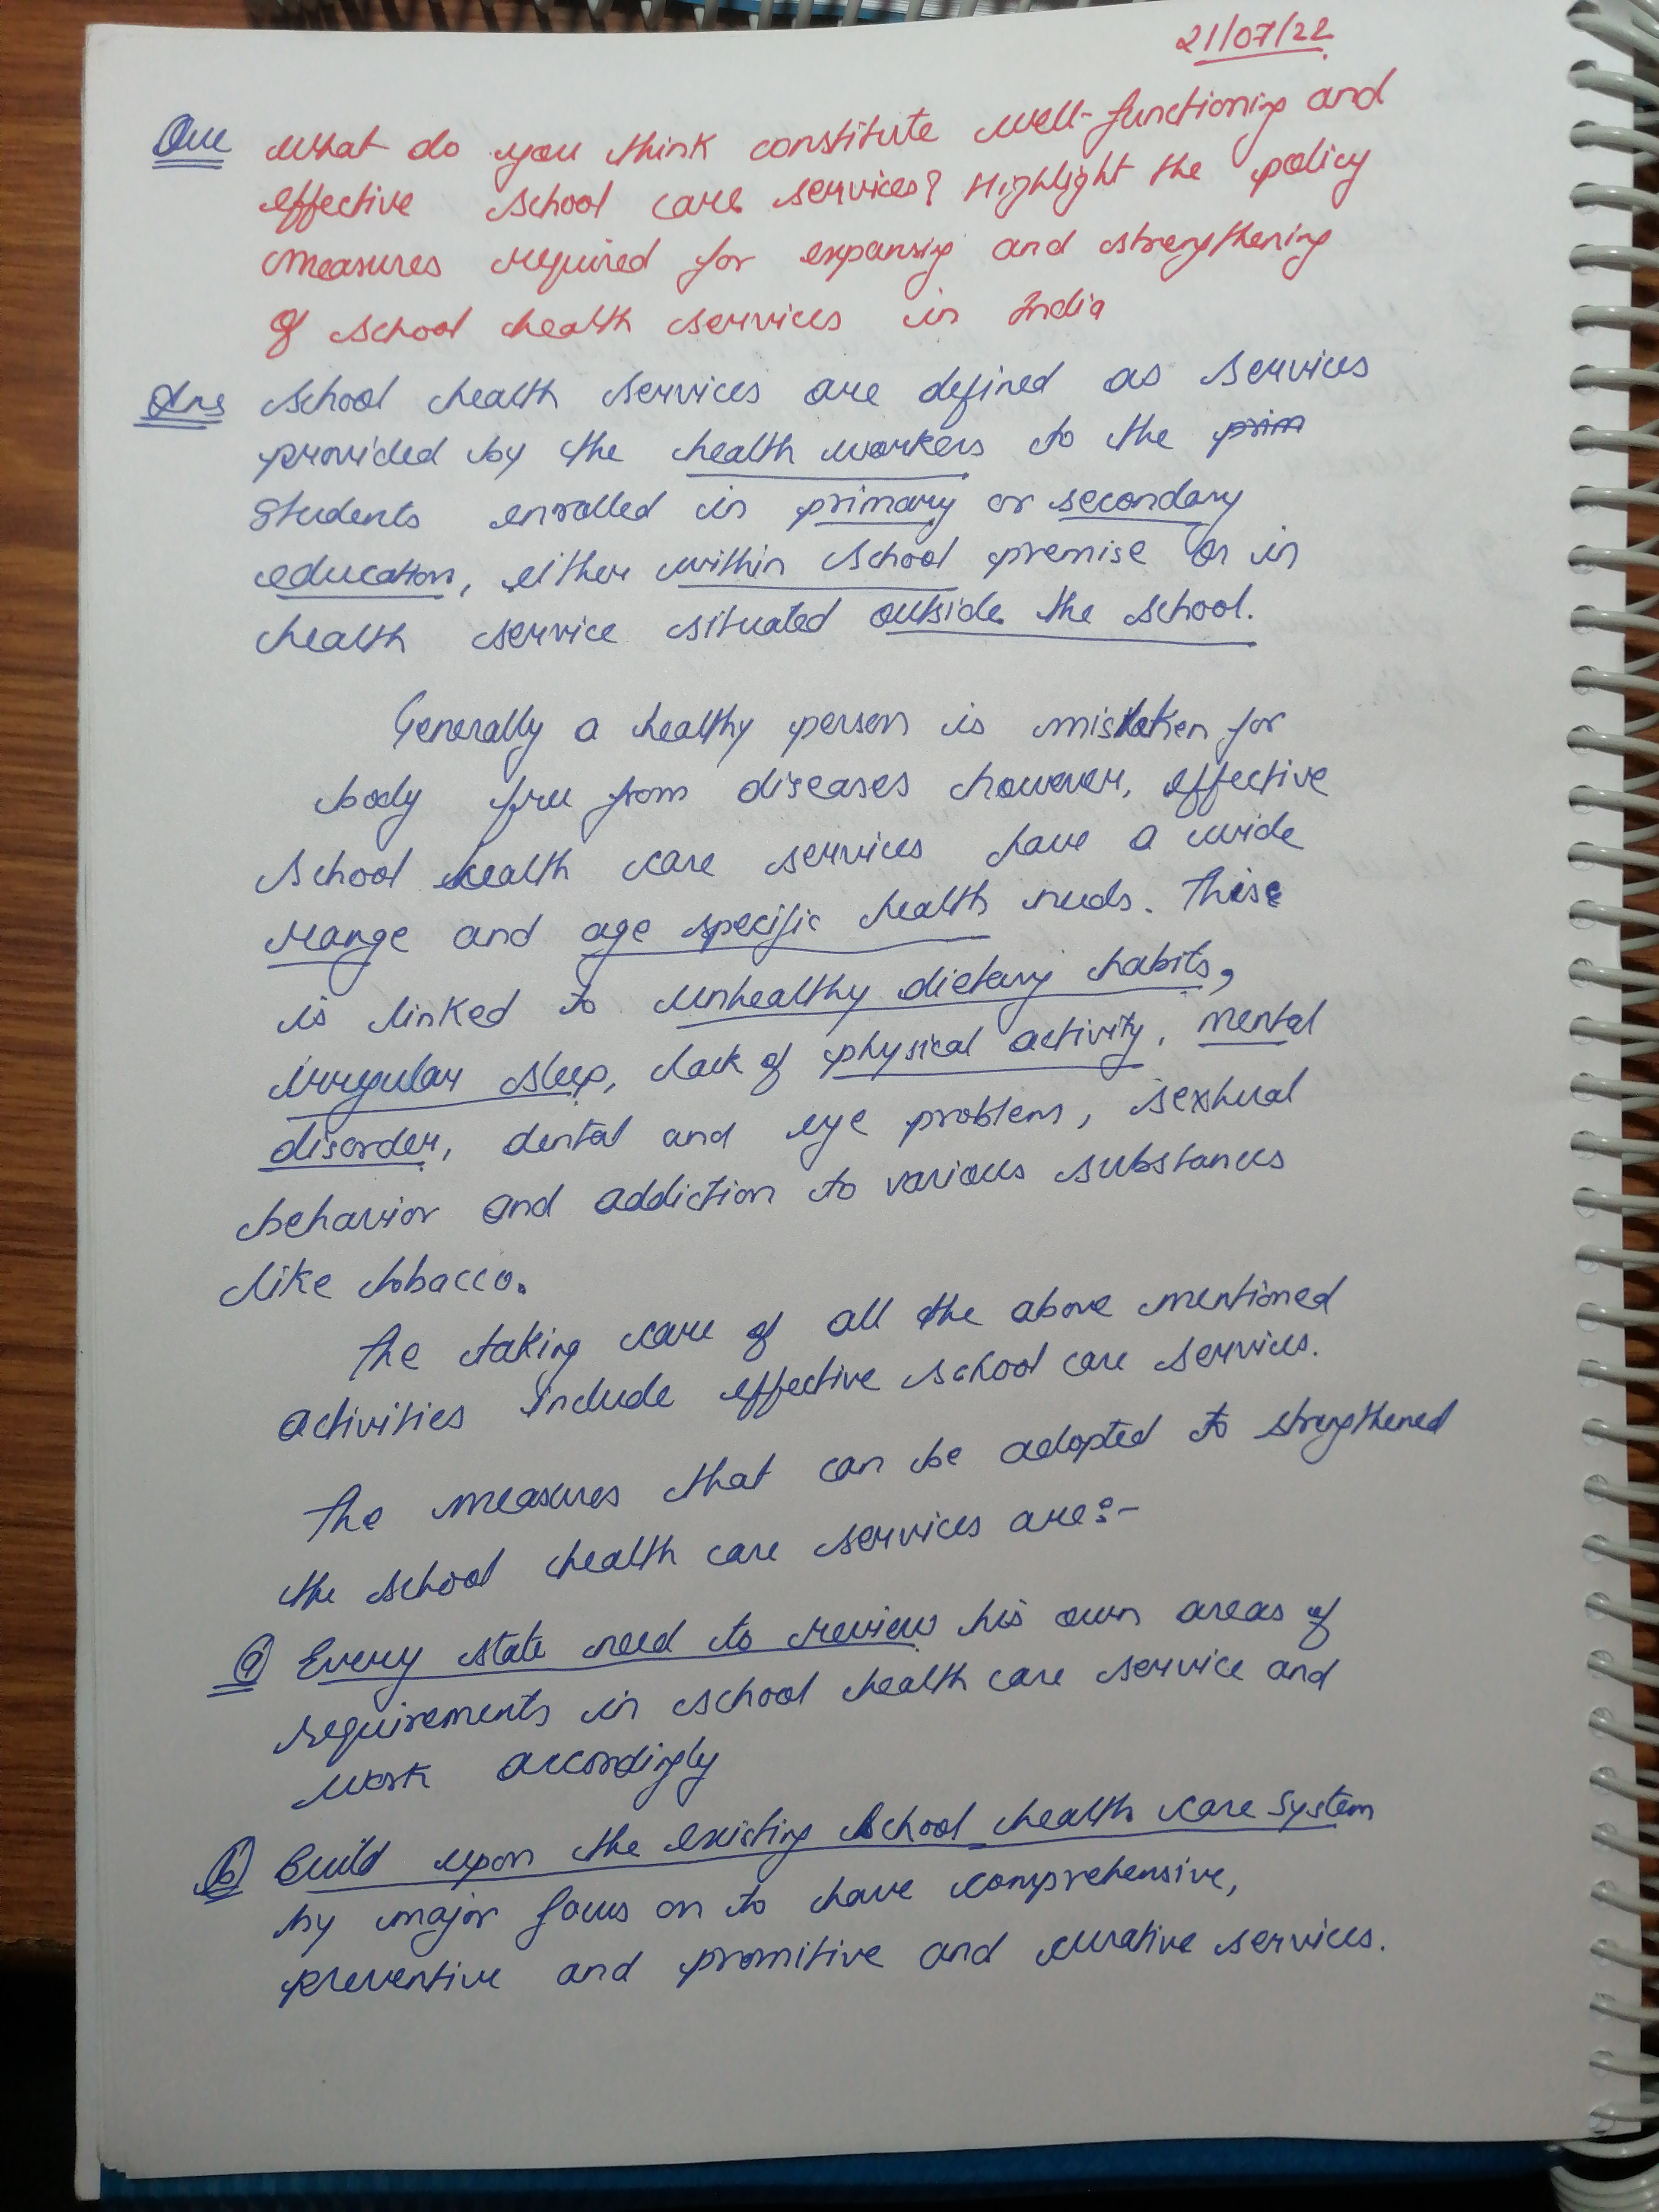 21/07/22
Que What do you think constitute well-functioning and
effective school care services? Highlight the policy
measures required for expansig and strengthening
of school health services in India
Ans School health services are defined as services
provided by the health workers to the prim
Students enrolled in primary or secondary
education, either within school premise or in
health service situated outside the school.
Generally a healthy person is mistaken for
body free from diseases however, effective
School health care services have a wide
range and age specific health needs. These
is linked to unhealthy dietary habits,
irregular sleep, lack of physical activity, mental
disorder, dental and eye problem, sexhual
behavior and addiction to various substances
like tobacco.
The taking care of all the above mentioned
activities include effective school care services.
The measures that can be adopted to strengthened
the school health care services are:-
(a) Every state need to review his own areas of
requirements in school health care service and
work accordingly
(b) Build upon the existing school health care system
by major focus on to have comprehensive,
preventive and promitive and curative services.